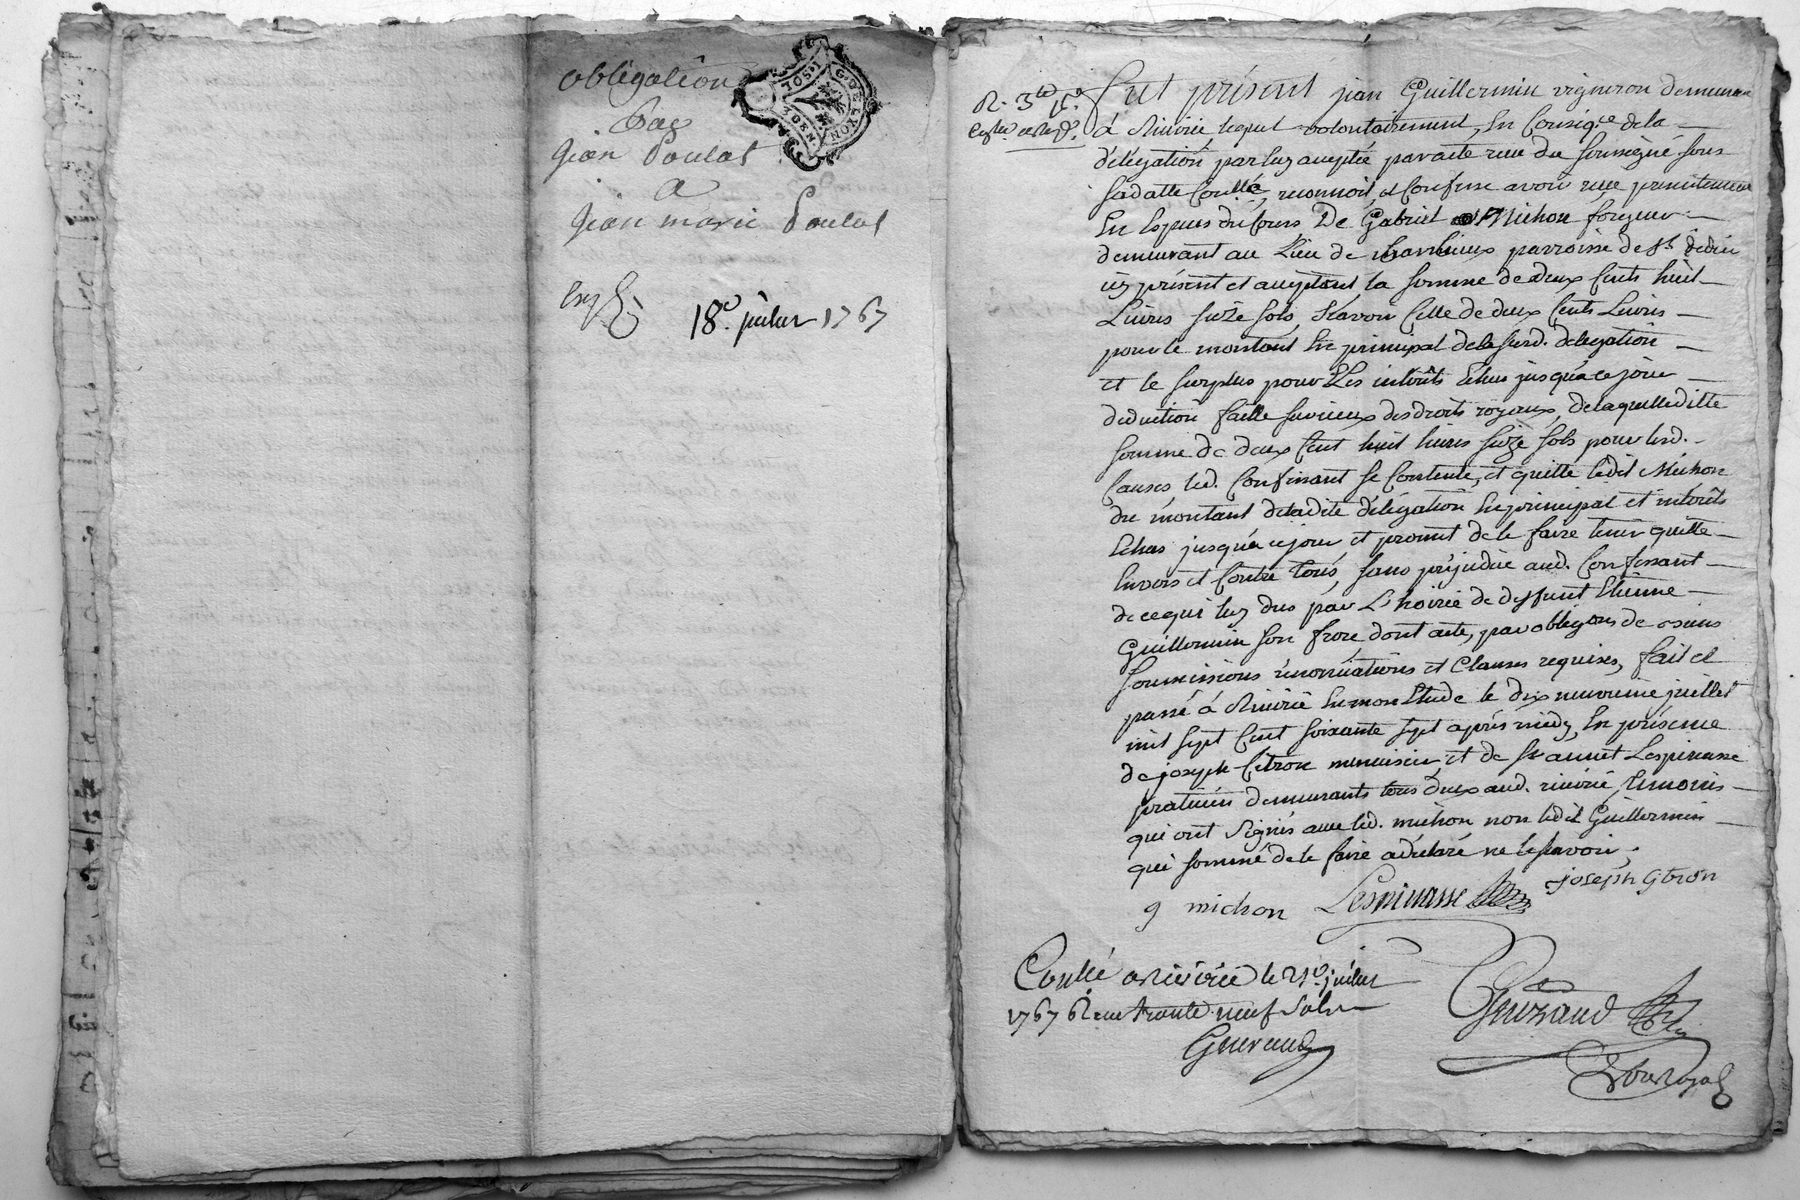 obligation
Par
Jean Poulat
a
Jean marie Poulat
18e. juilet 1767
G. DE LYON
Fut présent jean Guillermin vigneron demeurant
à Riverie lequel volontairement, En Conseqce. de la
délégation par luy acceptée par acte reçu du soussigné sous
sa datte Conllé, reconnoit et Confesse avoir reçu présentement
En Especes du Cours De Gabriel Michon forgeur
demeurant au Lieu de parroisse de st. didier
icy présent et acceptant la somme de deux Cents huit
Livres seize sols, Scavoir Celle de deux Cents Livres
pour le montant En principal de la susd. délégation
et le surplus pour Les intérêts Echus jusqu'à ce jour
déduction faitte sur iceux des droits royaux, de laquelle ditte
somme de deux Cent huit livres seize sols pour lesd.
Causes led. Confessant se Contente, et quitte ledit Michon
du montant de ladite délégation En principal et intérêts
Echus jusqu'à ce jour et promet de le faire tenir quitte
Envers et Contre Tous, sans préjudice aud. Confessant
de ce qui luy dus par L'hoirie de deffunt Etienne
Guillermin son frere, dont acte, par obligons de
soumissions renonciations et Clauses requises, fait et
passé à Riverie En mon Etude le dix neuvieme juillet
mil sept Cent soixante sept après midy, En présence
de joseph Citron menuisier, et de sr. annet Lespinasse
praticien demeurants tous deux aud. riverie, Temoins
qui ont Signés avec led. michon non ledit Guillermin
qui sommé de le faire a déclaré ne le scavoir,
g michon Lespinasse joseph Citron
Conllé a Riverie le 21e. juilet
1767 Recu trente neuf Sols